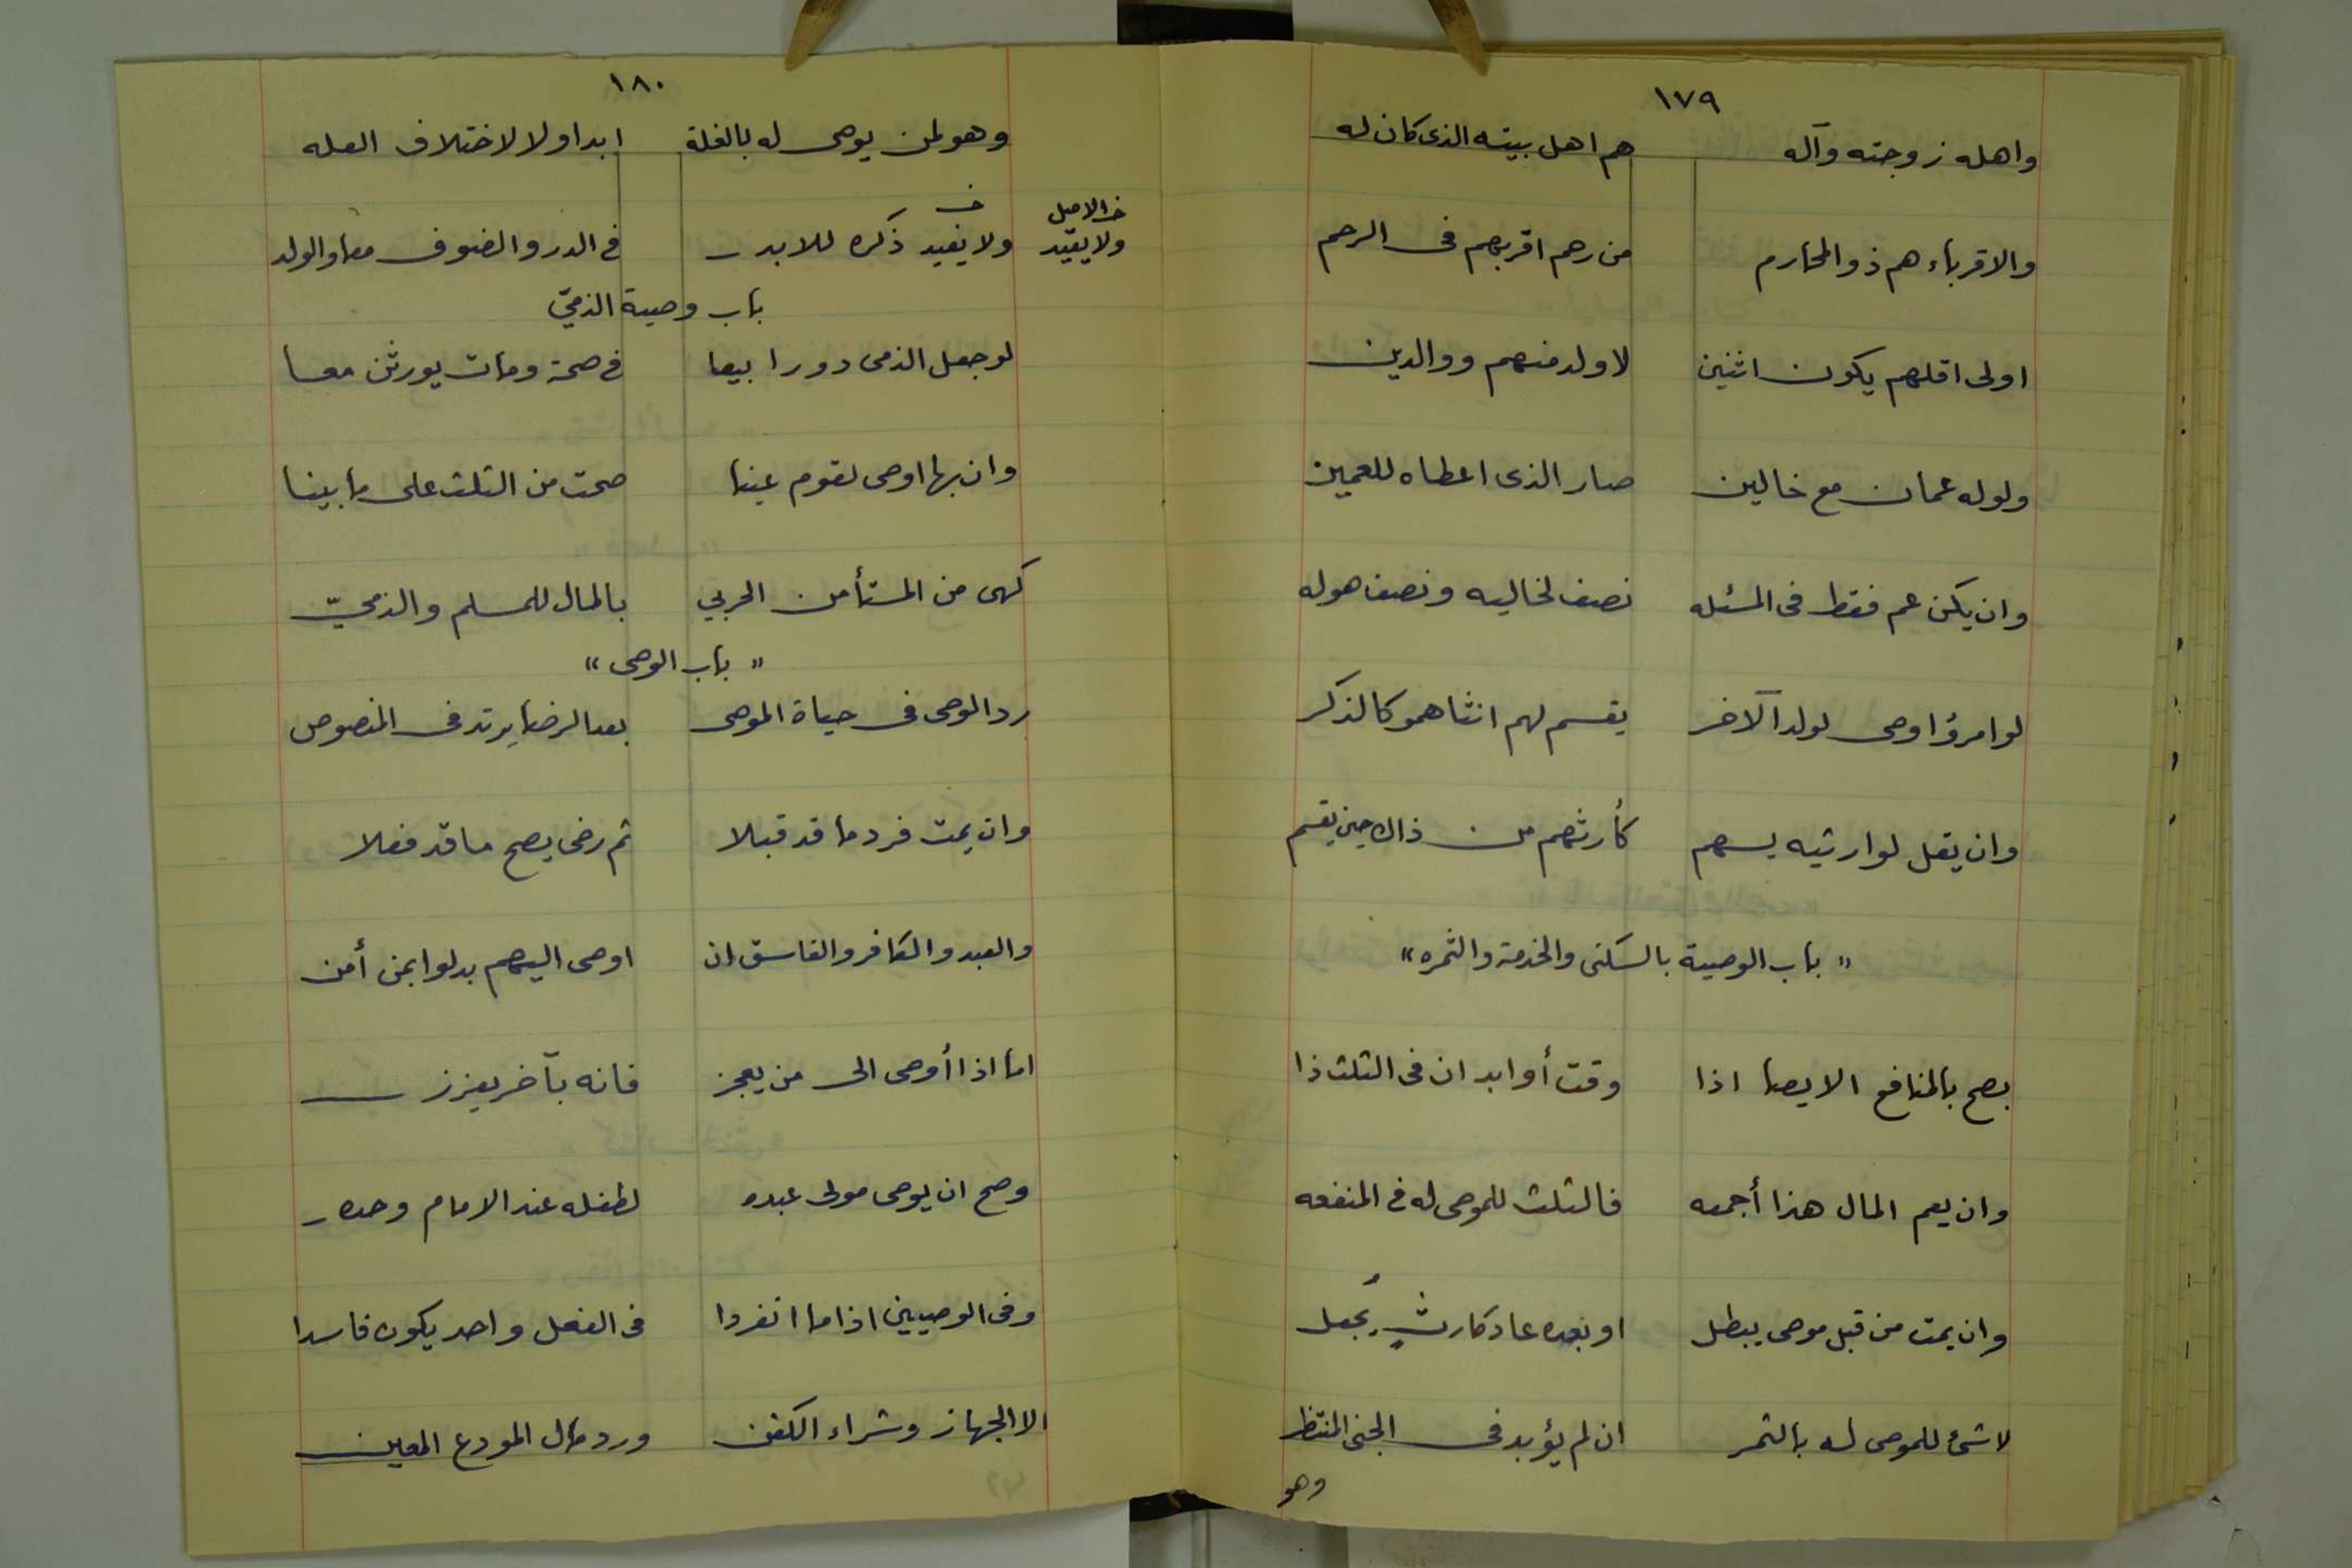 ١٧٩
واهله زوجته وآله هم اهل بيته الذى كان له
والاقرباء هم ذو المحارم من رحم اقربهم فى الرحم
اولى اقلهم يكون اثنين لا ولد منهم ووالدين
ولوله عمان مع خالين صار الذى اعطاه للعمين
وان يكن عم فقط فى المسئله نصف لخاليه ونصف هو له
لوامرؤ اوصى لولد آلاخر يقسم لهم انثاهمو كالذكر
وان يقل لوارثيه يسهم كأرثهم من ذاك حين يقسم
" باب الوصية بالسكنى والخدمة والثمره "
يصح بالمنافع الايصا اذا وقت أوابد ان فى الثلث ذا
وان يعم المال هذا أجمعه فالثلث للموصى له فى المنفعه
وان يمت من قبل موصى يبطل او بعده عاد كارثٍ يُجعل
لا شئ للموصى له بالثمر ان لم يؤبد فى الجنى المنتظر
وهو
١٨٠
وهو لمن يوصى له بالغلة ابدا ولا لاختلاف العله
ولا يفيد ذكره للابد فى الدر والصوف معا والولد
خ الاصل
ولا يقيّد
باب وصية الذمىّ
لو جعل الذمى دورا بيعا فى صحة ومات يورثن معا
وان بها اوصى لقوم عينا صحت من الثلث على ما بينا
كهى من المستأمن الحربي بالمال للمسلم والذمىّ
" باب الوصى "
رد الوصى فى حياة الموصى بعد الرضا يرتد فى المنصوص
وان يمت فرد ما قد قبلا ثم رضى يصح ما قد فعلا
والعبد والكافر والفاسق ان اوصى اليهم بدلوا بمن أمن
اما اذا أوصى الى من يعجز فانه بآخر يعزز
وصح ان يوصى مولى عبده لطفله عند الامام وحده
وفى الوصيين اذا ما انفردا فى الفعل واحد يكون فاسدا
الا الجهاز وشراء الكفن ورد مال المودع المعين